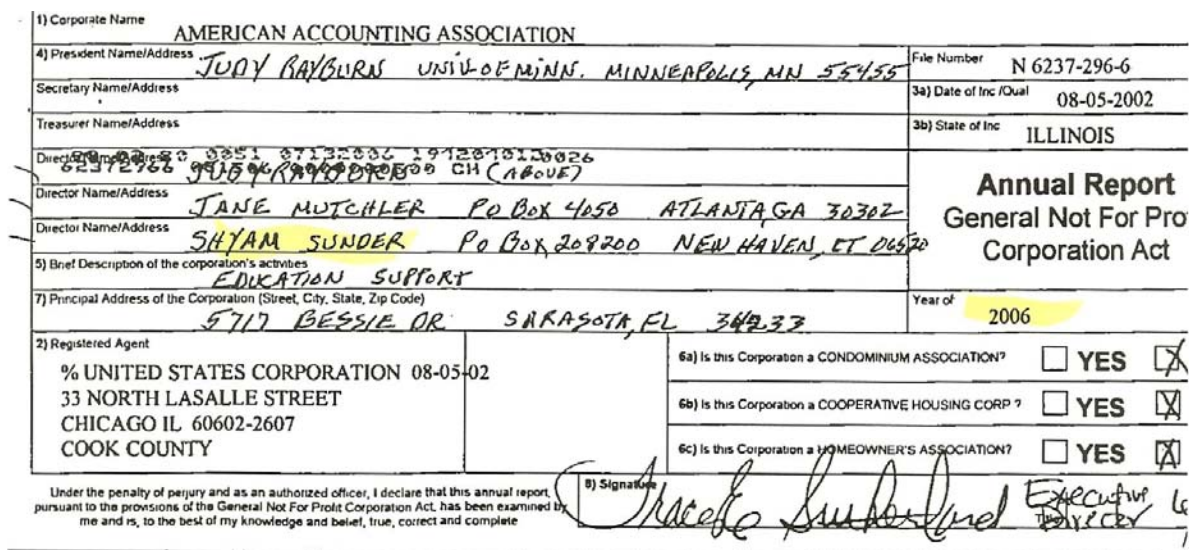 1) Corporate Name
AMERICAN ACCOUNTING ASSOCIATION
4) President Name/Address JUDY RAYBURN UNIV OF MINN. MINNEAPOLIS, MN 55455
File Number N 6237-296-6
Secretary Name/Address
3a) Date of Inc /Qual 08-05-2002
Treasurer Name/Address
3b) State of Inc ILLINOIS
Director Name/Address
0051 07132006
62372966 CH (ABOVE)
JUDY RAYBURN
Annual Report
General Not For Pro
Corporation Act
Director Name/Address JANE MUTCHLER PO BOX 4050 ATLANTA GA 30302
Director Name/Address SHYAM SUNDER PO BOX 208200 NEW HAVEN, CT 06520
5) Brief Description of the corporation's activities
EDUCATION SUPPORT
7) Principal Address of the Corporation (Street, City, State, Zip Code)
5717 BESSIE DR SARASOTA, FL 34233
Year of 2006
2) Registered Agent
% UNITED STATES CORPORATION 08-05-02
33 NORTH LASALLE STREET
CHICAGO IL 60602-2607
COOK COUNTY
6a) Is this Corporation a CONDOMINIUM ASSOCIATION? YES X
6b) Is this Corporation a COOPERATIVE HOUSING CORP ? YES X
6c) Is this Corporation a HOMEOWNER'S ASSOCIATION? YES X
Under the penalty of perjury and as an authorized officer, I declare that this annual report,
pursuant to the provisions of the General Not For Profit Corporation Act, has been examined by
me and is, to the best of my knowledge and belief, true, correct and complete
8) Signature
Sutherland Executive
Director